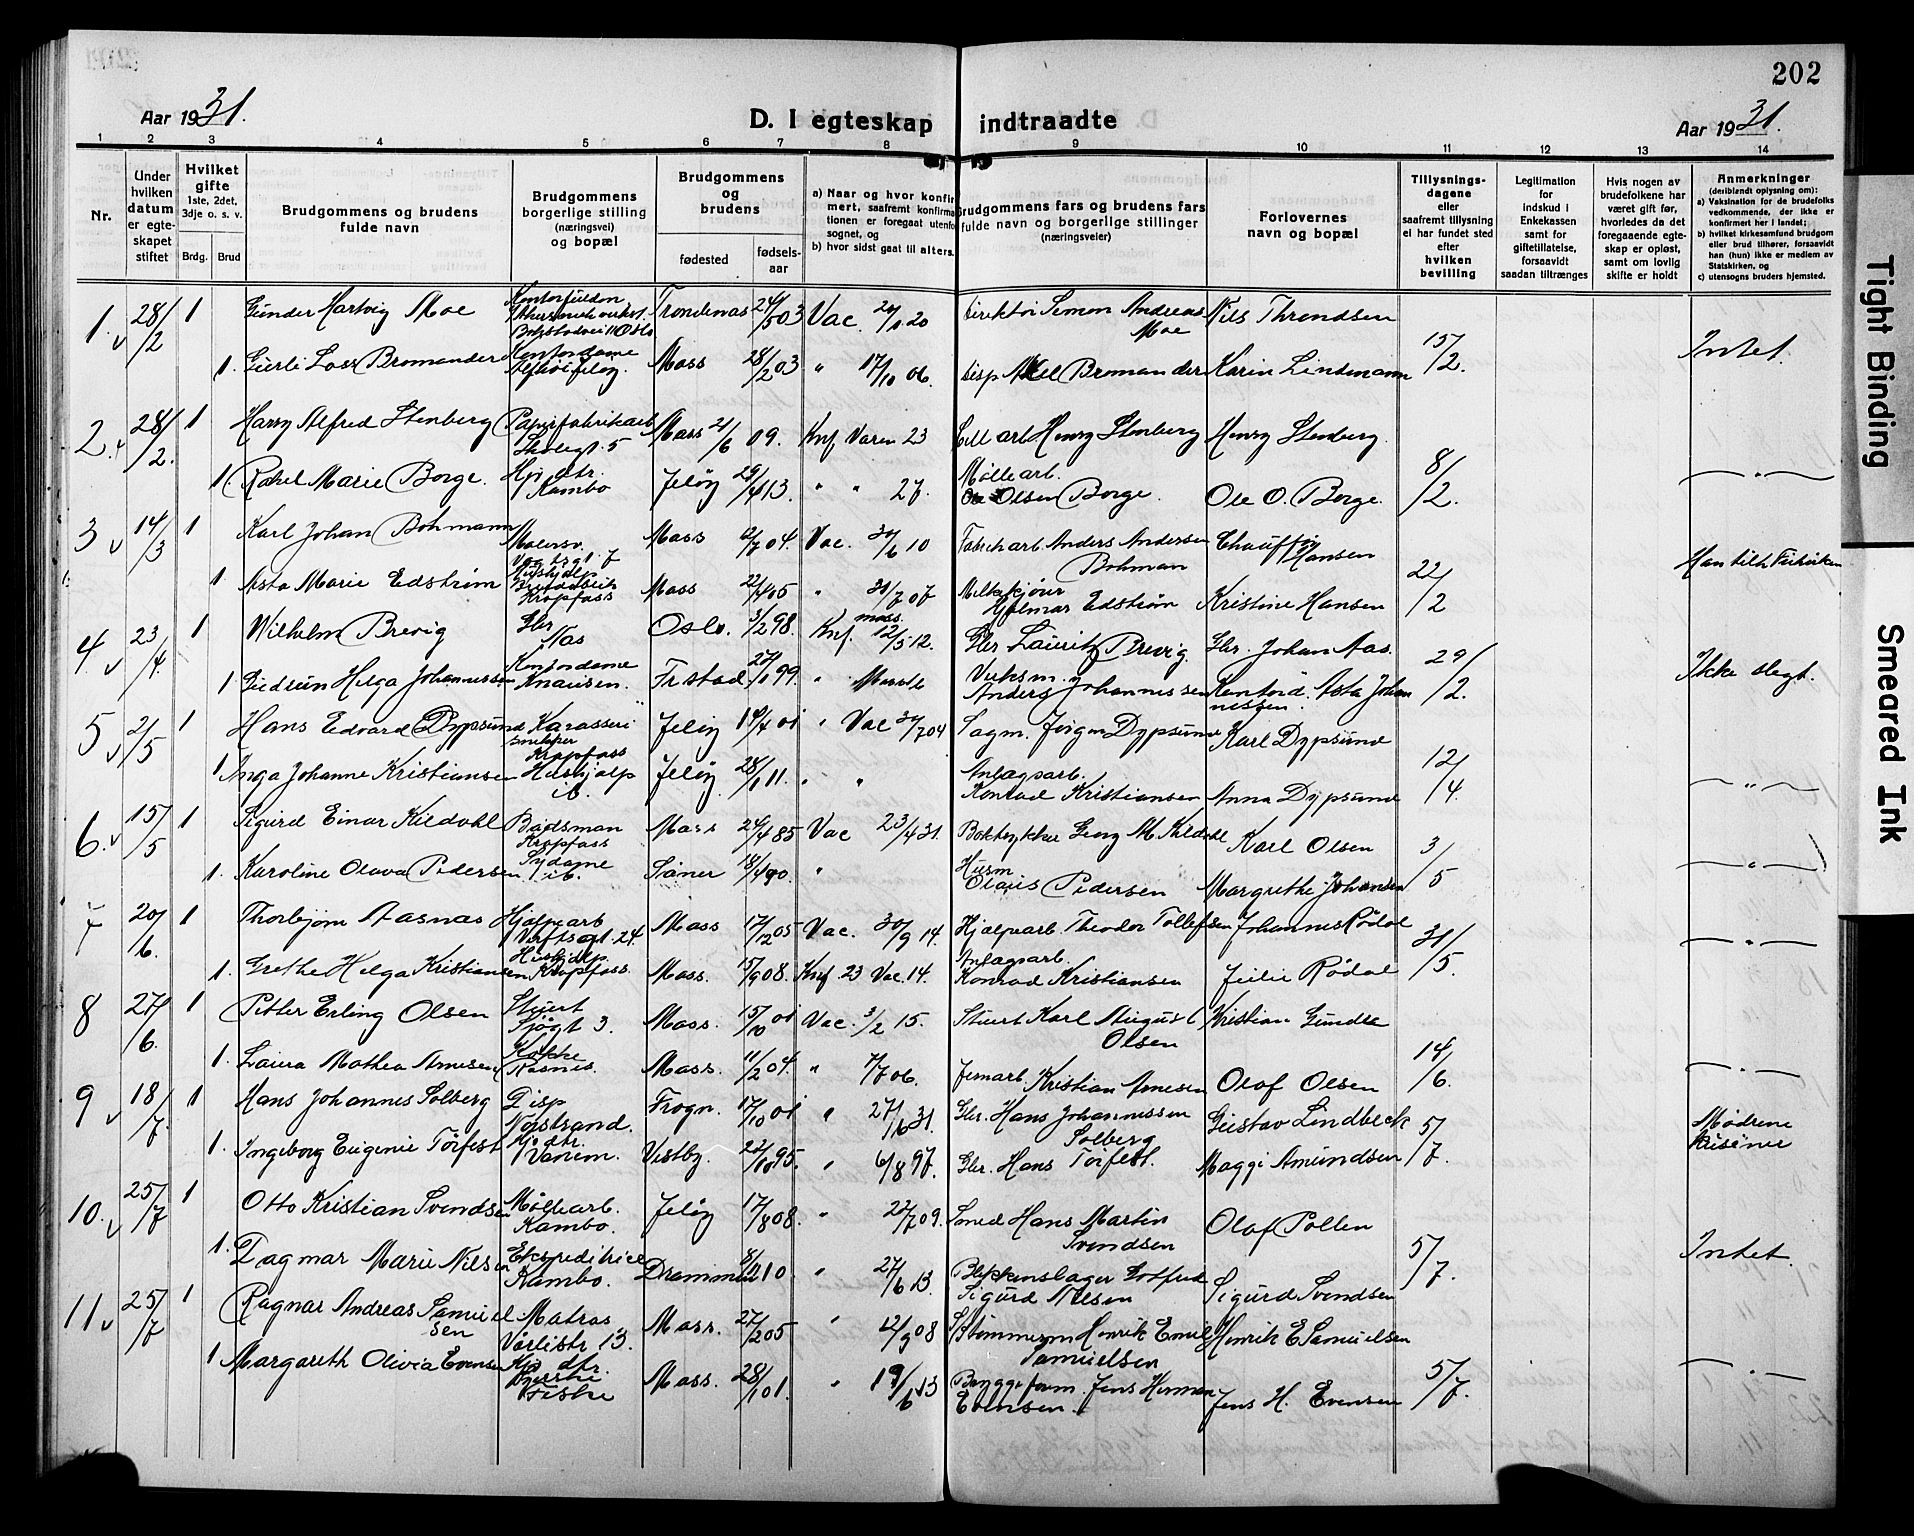 202
Aar 1931.
D. I egteskap indtraadte
Aar 1931.
1 2 3 4 5 6 7 8 9 10 11 12 13 14
Nr.
Under hvilken datum er egteskapet stiftet
Hvilket gifte 1ste, 2det, 3dje o. s. v.
Brdg. Brud
Brudgommens og brudens fulde navn
Brudgommens borgerlige stilling (næringsvei) og bopæl
Brudgommens og brudens
fødested
fødselsaar
a) Naar og hvor konfirmert, saafremt konfirmationen er foregaat utenfor sognet, og
b) hvor sidst gaat til alters.
Brudgommens fars og brudens fars fulde navn og borgerlige stillinger (næringsveier)
Forlovernes navn og bopæl
Tillysningsdagene eller saafremt tillysning ei har fundet sted efter hvilken bevilling
Legitimation for indskud i Enkekassen samt for giftetillatelse, forsaavidt saadan tiltrænges
Hvis nogen av brudefolkene har været gift før, hvorledes da det foregaaende egteskap er opløst, samt om lovlig skifte er holdt
Anmerkninger (deriblandt oplysning om):
a) Vaksination for de brudefolks vedkommende, der ikke er konfirmert her i landet;
b) hvilket kirkesamfund brudgom eller brud tilhører, forsaavidt han (hun) ikke er medlem av Statskirken, og
c) utensogns bruders hjemsted.
1. 28/2 1 Gunder Hartvig Moe Trondenas 24/5 03 Vac. 20 Direktør Simon Andreas Moe Nils Throndsen 15/2. Intet.
1. Gurli Loss Bromander Kontordame Jeløy. Moss 28/2 03 " 17/10 06. Disp Axel Bromander Karin Lindmann
2. 28/2. 1 Harry Alfred Stenberg Papirfabrikarb Skolegt. 5 Moss 21/6 09. Knf Varen 23 Cell arb Henry Stenberg Henry Stenberg. 8/2. — " —
1 Rakel Marie Borge. Hj dtr. Kambo Jeløy 29/4 13. " " 27. Møllearb. Ole Olsen Borge. Ole O. Borge.
3 14/3 1 Karl Johan Bohmann Malersv. Moss 12/7 04. Vac. 30/6 10 Fabrikarb Anders Andersen Bohman Chauffør Hansen 22/2
1 Asta Marie Edstrøm Kropfoss Moss 22/4 05 " 30/7 07 Melkekjører Hjalmar Edstrøm Kristine Hansen
4 23/4. 1 Wilhelm Brevig Gbr Nas Oslo. 3/2 98. Knf. Moss 12/5 12. Gbr Lauritz Brevig. Gbr. Johan Aas. 29/2. Ikke slegt.
1 Gudrun Helga Johannessen Kontordame Knausen. Fr stad 99. " Anders Johannissen Kontord. Asta Johannissen.
5 2/5 1 Hans Edvard Dypsund Jeløy 14/4 01 " Vac 30/7 04 Sagm. Jørgen Dypsund Karl Dypsund 12/4. — " —
1 Inga Johanne Kristiansen Kropfoss Hushjælp ib. Jeløy 28/1 11. " " Anlagsarb. Konrad Kristiansen Anna Dypsund
6. 15/5 1 Sigurd Einar Kildahl Baadsman Kropfoss Moss 24/4 85 Vac 23/4 31. Boktrykker Georg M. Kildahl Karl Olsen 3/5 — " —
1. Karoline Olava Pedersen Sydame ib. Saner 18/4 90. " Husm Olaus Pedersen Margrethe Johansen
7 20/6. 1 Thorbjørn Aasnas Hjælpearb Verftsgt. 24. Moss 17/12 05 Vac. 30/9 14. Hjælpearb. Theodor Tollefsen Johannes Rødal 31/5. — " —
1. Grethe Helga Kristiansen Hushjælp. Kropfoss. Moss. 15/9 08. Knf 23 Vac. 14. Anlagsarb. Konrad Kristiansen Rødal
8 27/6. 1 Petter Erling Olsen Stuert Sjøgt 3. Moss. 15/10 01 Vac. 3/2 15. Stuert Karl August Olsen Kristian Gundes 14/6 — " —
1. Laura Mathea Arnesen Kokke Moss. 11/2 04. " 7/7 06. Jernarb. Kristian Arnesen Olaf Olsen
9 18/7. 1 Hans Johannes Solberg Disp Nøistrand. Frogn. 17/10 01 " 27/6 31. Gbr. Hans Johannissen Solberg Gustav Lindbeck 5/7. Mødrene kusiner
1. Ingeborg Eugenie Torfest Hj dtr. Vanem. Vestby. 22/10 95. " 6/8 97. Gbr. Hans Torfest. Maggi Amundsen
10. 25/7 1 Otto Kristian Svendsen Møllearb. Kambo. Jeløy 17/8 08. " 22/7 09. Smed Hans Martin Svendsen Olaf Pollen 5/7. Intet.
1. Dagmar Marie Nilsen Ekspeditrice Kambo. Drammen 8/11 10 " 27/6 13. Blikkenslager Godfred Sigurd Nilsen Sigurd Svendsen
11 25/7 1 Ragnar Andreas Samuelsen Matros Varlistr 13. Moss. 27/2 05 " 12/9 08 Henrik Emil Samuelsen Henrik E Samuelsen 5/7. — " —
1 Margareth Olivia Evensen Hj dtr. Moss. 28/1 01. " 19/6 13 Bryggeform. Jens Herman Evensen. Jens H. Evensen
Tight Binding
Smeared Ink